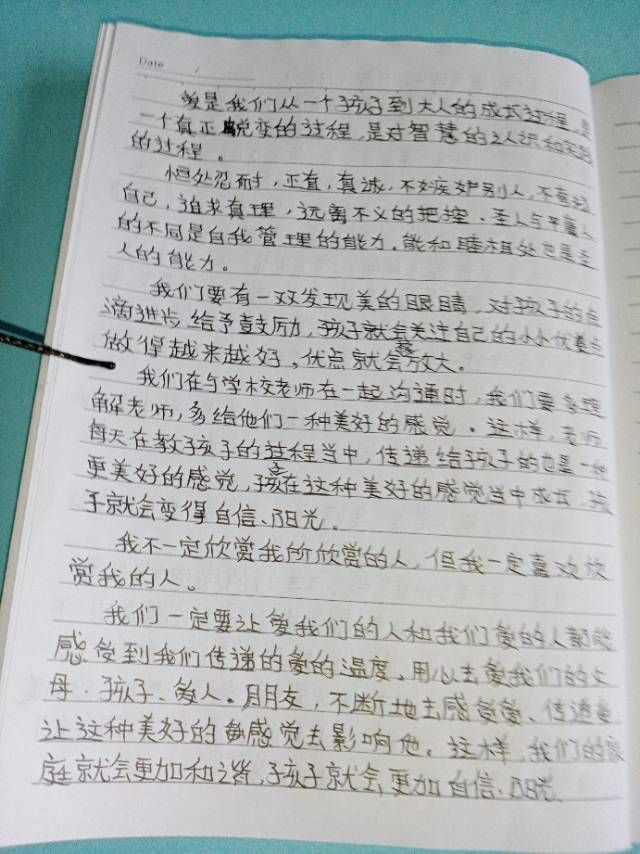 Date
爱是我们从一个孩子到大人的成长过程，是
一个真正蜕变的过程，是对智慧的认识和实践
的过程。
恒处忍耐，正直，真诚，不嫉妒别人，不夸
自己，追求真理，远离不义的把控。圣人与平庸人
的不同是自我管理的能力，能和睦相处也是圣
人的能力。
我们要有一双发现美的眼睛，对孩子的点
滴进步给予鼓励，孩子就会关注自己的小小优点
做得越来越好，优点就会放大。
我们在与学校老师在一起沟通时，我们要多理
解老师，多给他们一种美好的感觉。这样，老师
每天在教孩子的过程当中，传递给孩子的也是一种
更美好的感觉，孩子在这种美好的感觉当中成长，孩
子就会变得自信、阳光。
我不一定欣赏我所欣赏的人，但我一定喜欢欣
赏我的人。
我们一定要让爱我们的人和我们爱的人都能
感受到我们传递的爱的温度，用心去爱我们的父
母，孩子、爱人。朋友，不断地去感受爱、传递爱
让这种美好的感觉去影响他。这样，我们的家
庭就会更加和谐，孩子就会更加自信、阳光